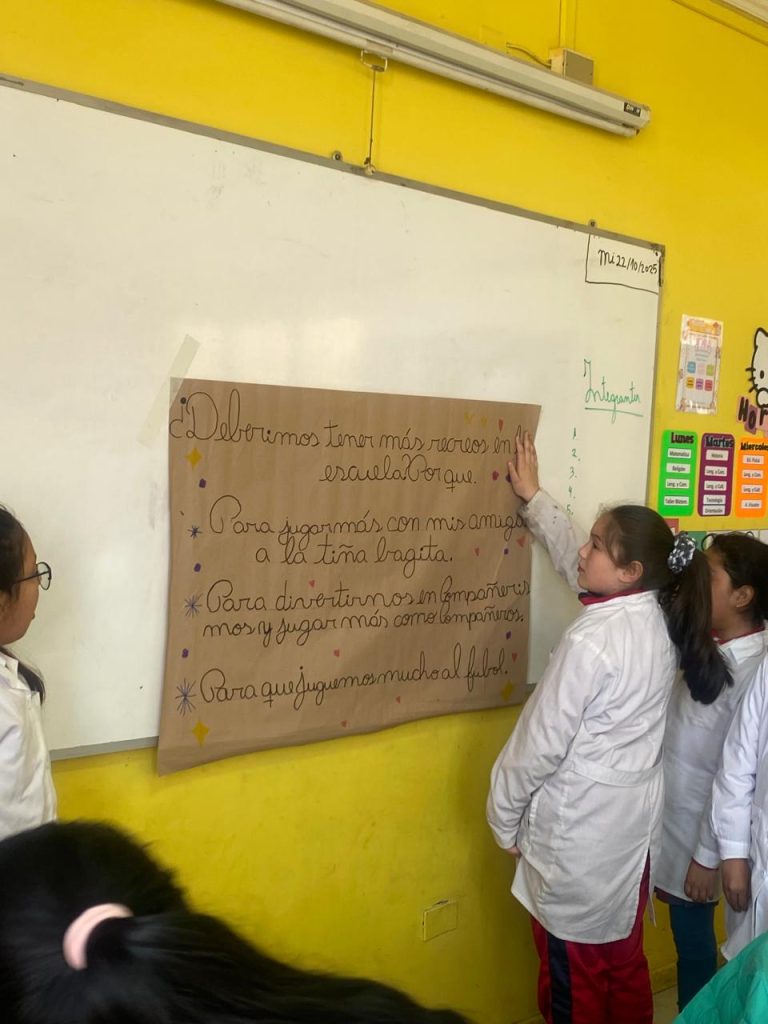 Mi 22/10/2025
¿Deberimos tener más recreos en l
escuela Porque.
Para jugar más con mis amigos
a la tiña bagita.
Para divertirnos en Compañeris
mos y jugar más como Compañeros.
Para que juguemos mucho al fubol.
Integrantes
1.
2.
3.
4.
5.
Lunes
Matemática
Religión
Leng. y Com.
Taller Matem.
Martes
Historia
Leng. y Com.
Leng. y Cult.
Tecnología
Orientación
Miercoles
Ed. Física
Leng. y Com.
Leng. y Cult.